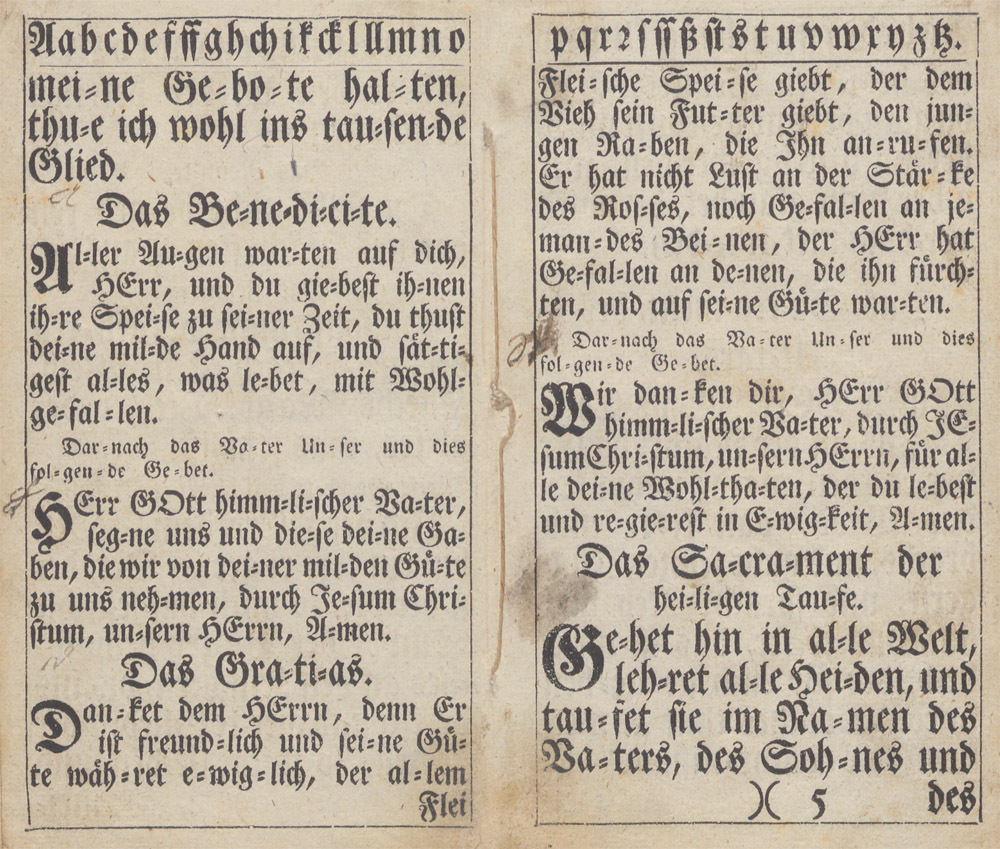 Aabcdefffghchikcklllmno
mei⸗ne Ge⸗bo⸗te hal⸗ten,
thu⸗e ich wohl ins tau⸗sen⸗de
Glied.
Das Be⸗ne⸗di⸗ci⸗te.
Al⸗ler Au⸗gen war⸗ten auf dich,
HErr, und du gie⸗best ih⸗nen
ih⸗re Spei⸗se zu sei⸗ner Zeit, du thust
dei⸗ne mil⸗de Hand auf, und sät⸗ti⸗
gest al⸗les, was le⸗bet, mit Wohl⸗
ge⸗fal⸗len.
Dar⸗nach das Va⸗ter Un⸗ser und dies
fol⸗gen⸗de Ge⸗bet.
HErr GOtt himm⸗li⸗scher Va⸗ter,
seg⸗ne uns und die⸗se dei⸗ne Ga⸗
ben, die wir von dei⸗ner mil⸗den Gü⸗te
zu uns neh⸗men, durch Je⸗sum Chri⸗
stum, un⸗sern HErrn, A⸗men.
Das Gra⸗ti⸗as.
Dan⸗ket dem HErrn, denn Er
ist freund⸗lich und sei⸗ne Gü⸗
te wäh⸗ret e⸗wig⸗lich, der al⸗lem
Flei
pqrꝛſsſſßſtstuvwxyztz.
Flei⸗sche Spei⸗se giebt, der dem
Vieh sein Fut⸗ter giebt, den jun⸗
gen Ra⸗ben, die Ihn an⸗ru⸗fen.
Er hat nicht Lust an der Stär⸗ke
des Ros⸗ses, noch Ge⸗fal⸗len an je⸗
man⸗des Bei⸗nen, der HErr hat
Ge⸗fal⸗len an de⸗nen, die ihn fürch⸗
ten, und auf sei⸗ne Gü⸗te war⸗ten.
Dar⸗nach das Va⸗ter Un⸗ser und dies
fol⸗gen⸗de Ge⸗bet.
Wir dan⸗ken dir, HErr GOtt
himm⸗li⸗scher Va⸗ter, durch JE⸗
sum Chri⸗stum, un⸗sern HErrn, für al⸗
le dei⸗ne Wohl⸗tha⸗ten, der du le⸗best
und re⸗gie⸗rest in E⸗wig⸗keit, A⸗men.
Das Sa⸗cra⸗ment der
hei⸗li⸗gen Tau⸗fe.
Ge⸗het hin in al⸗le Welt,
leh⸗ret al⸗le Hei⸗den, und
tau⸗fet sie im Na⸗men des
Va⸗ters, des Soh⸗nes und
)( 5 des